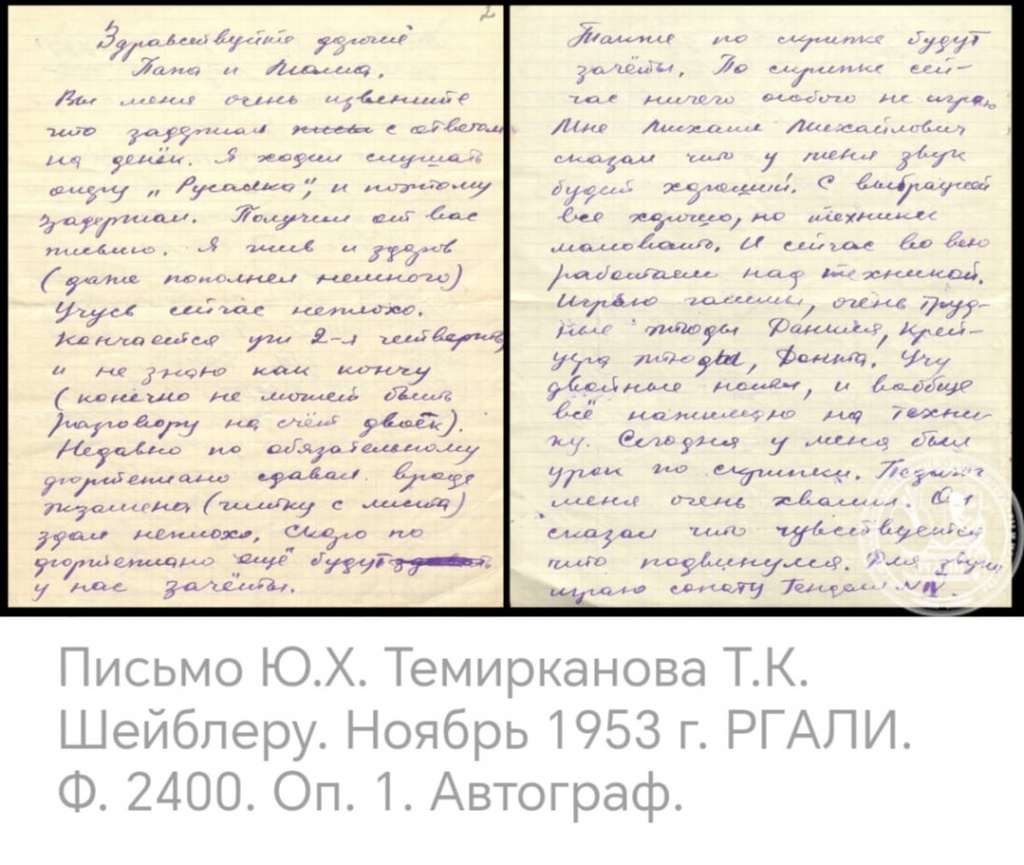 2
Здравствуйте дорогие
Папа и Мама.
Вы меня очень извените
что задержал с ответом
на денёк. Я ходил слушать
оперу „Русалка", и поэтому
задержал. Получил от вас
письмо. Я жив и здоров
(даже пополнел немного)
Учусь сейчас неплохо.
Кончается уже 2-я четверть
и не знаю как кончу
(конечно не может быть
разговору на счёт двоек).
Недавно по обязательному
фортепиано сдавал вроде
экзамена (читку с листа)
здал неплохо. Скоро по
фортепиано ещё будут
у нас зачёты.
Также по скрипке будут
зачёты. По скрипке сей-
час ничего особого не играю
Мне Михаил Михайлович
сказал что у меня звук
будет хороший. С выбрацией
всё хорошо, но техники
маловато. И сейчас во всю
работаем над техникой.
Играю гаммы, очень труд-
ные этюды Данкля, Крей-
цера этюды, Донта. Учу
двойные ноты, и вообще
всё нажимаю на техни-
ку. Сегодня у меня был
урок по скрипки. Педагог
меня очень хвалил. Он
сказал что чувствуется
что подвинулся. Для звука
играю сонату Гендаля № IV.
Письмо Ю.Х. Темирканова Т.К.
Шейблеру. Ноябрь 1953 г. РГАЛИ.
Ф. 2400. Оп. 1. Автограф.